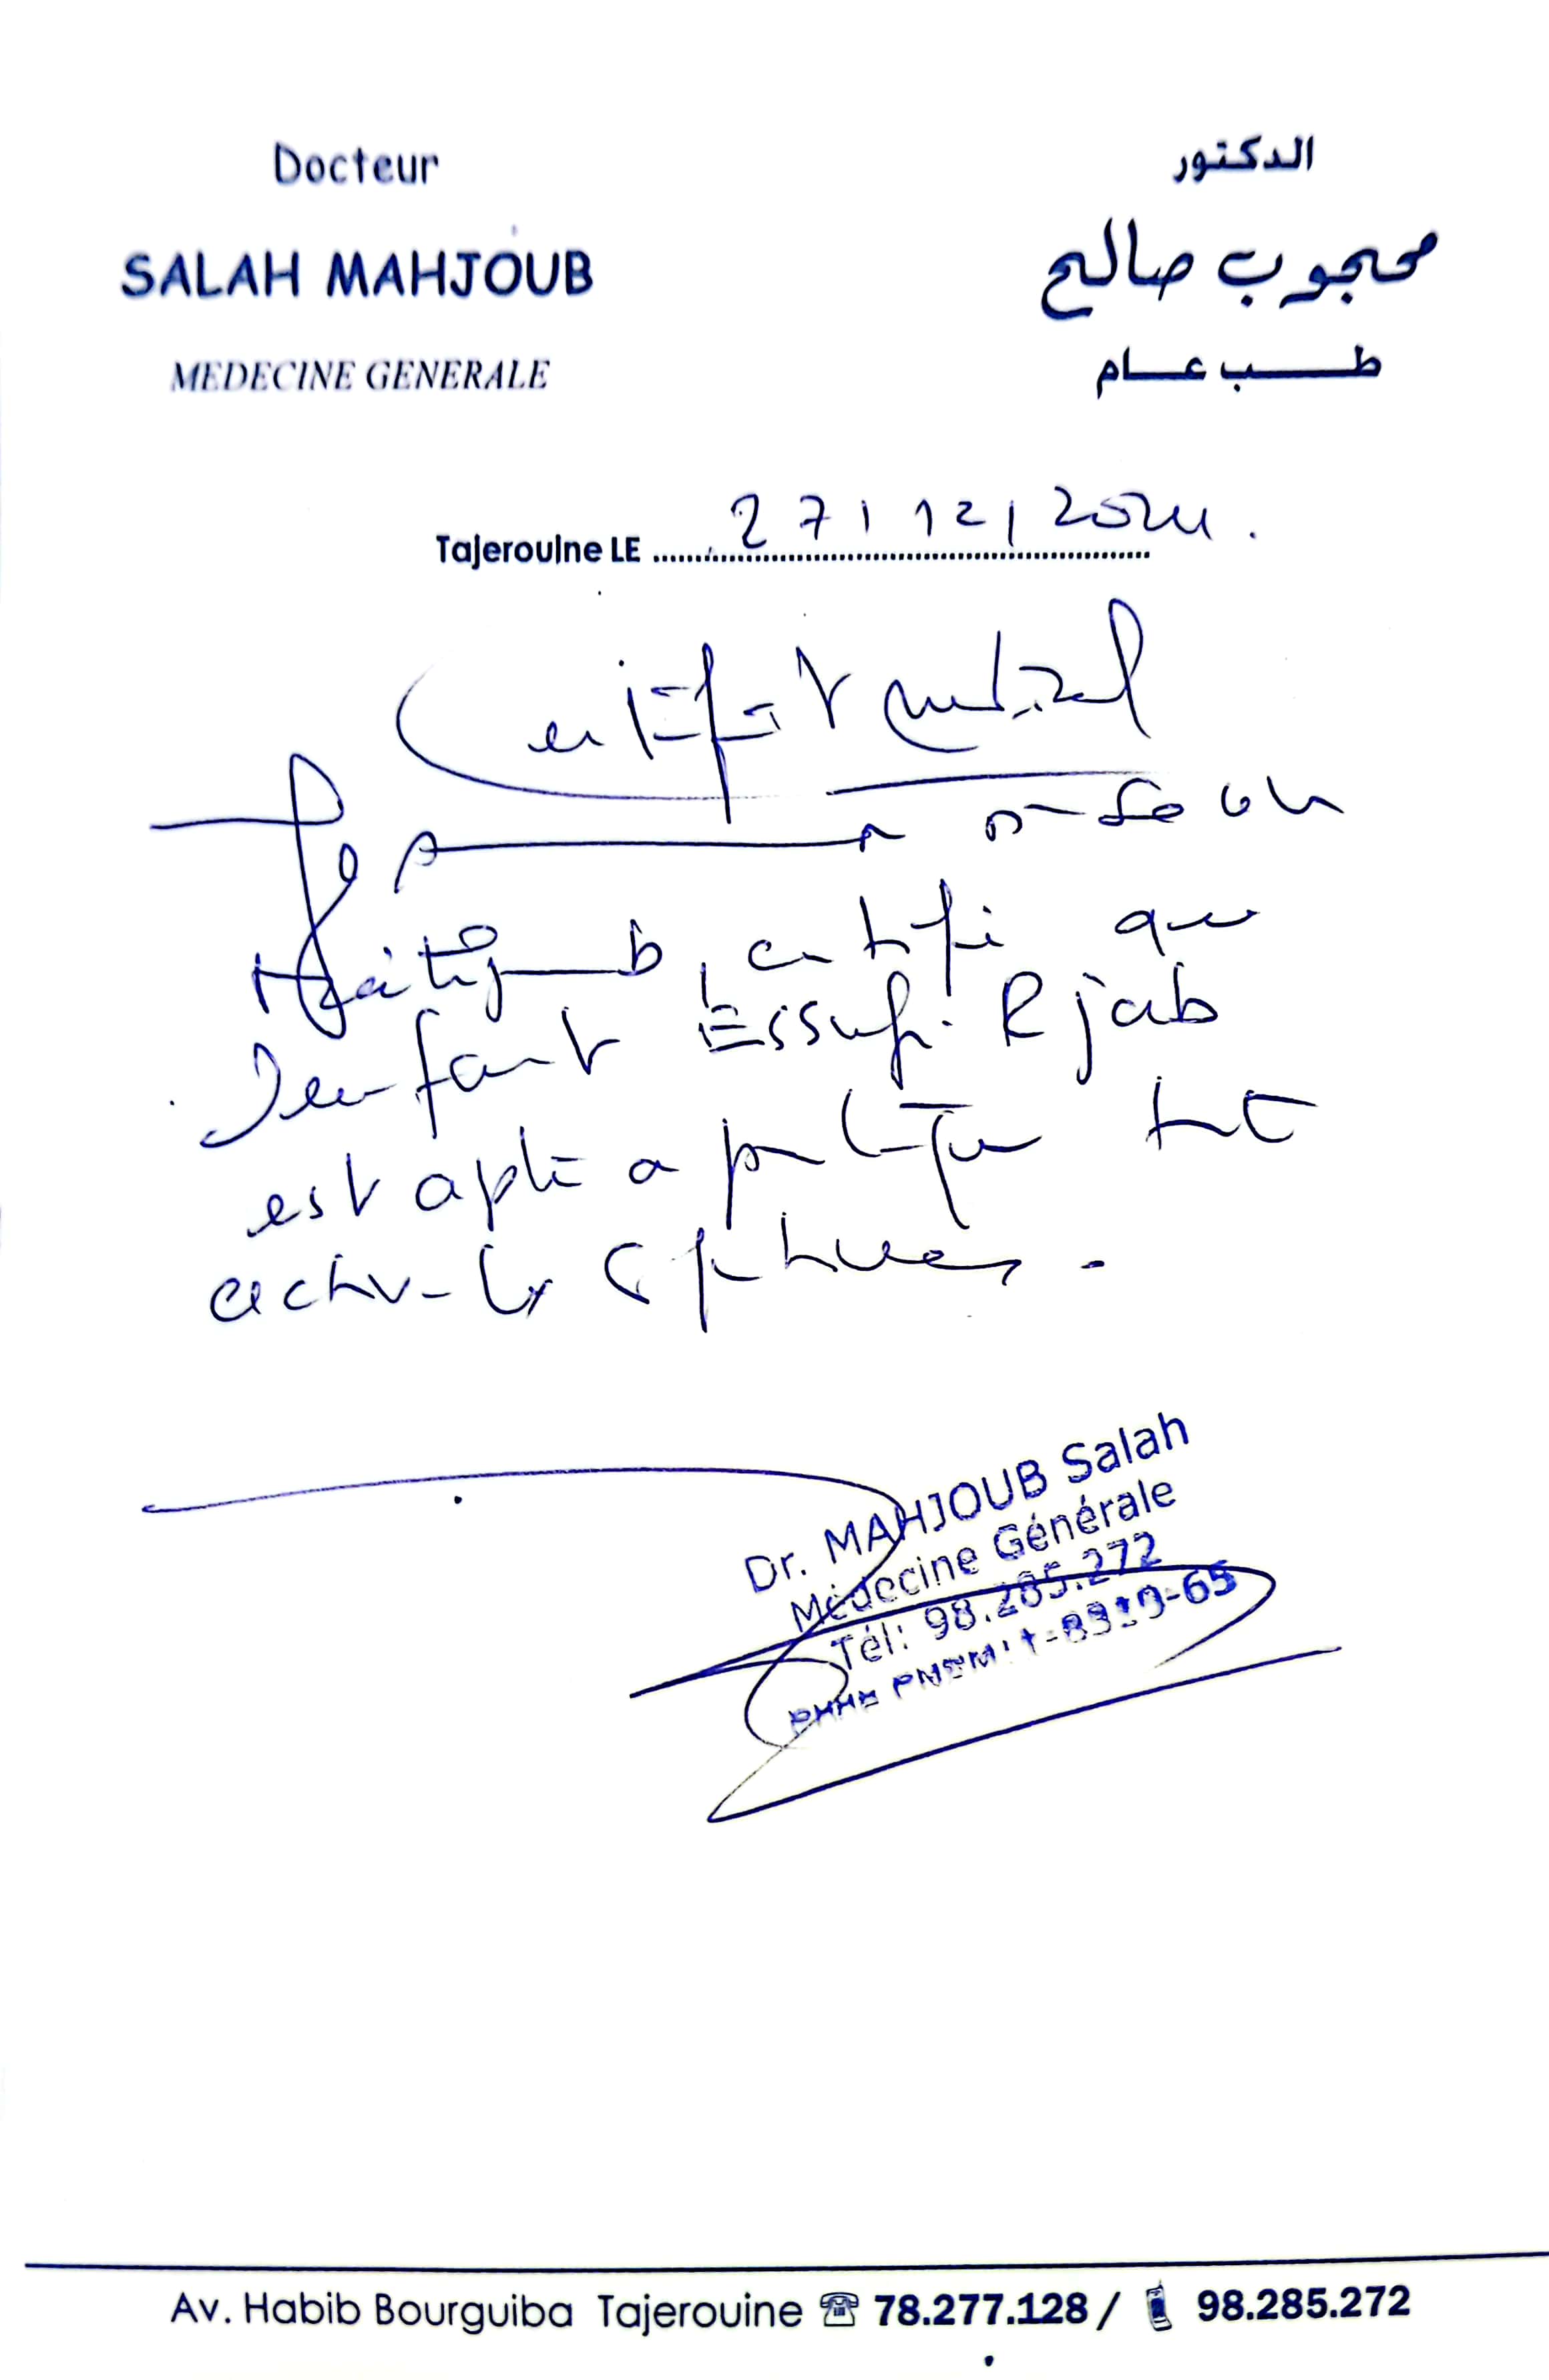 Docteur
SALAH MAHJOUB
MEDECINE GENERALE
الدكتور
محجوب صالح
طب عام
Tajerouine LE 27/12/2024.
Certificat medical
certifie que
l'enfant Essufi Rjab
est apte a pratiquer
Dr. MAHJOUB Salah
Médecine Générale
Tél: 98.285.272
Av. Habib Bourguiba Tajerouine 78.277.128 / 98.285.272